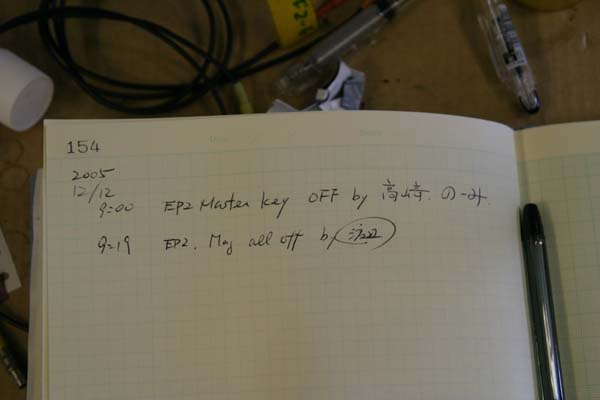 154
2005
12/12
9:00 EP2 Master key OFF by 高崎.
9:19 EP2. Mag all off by